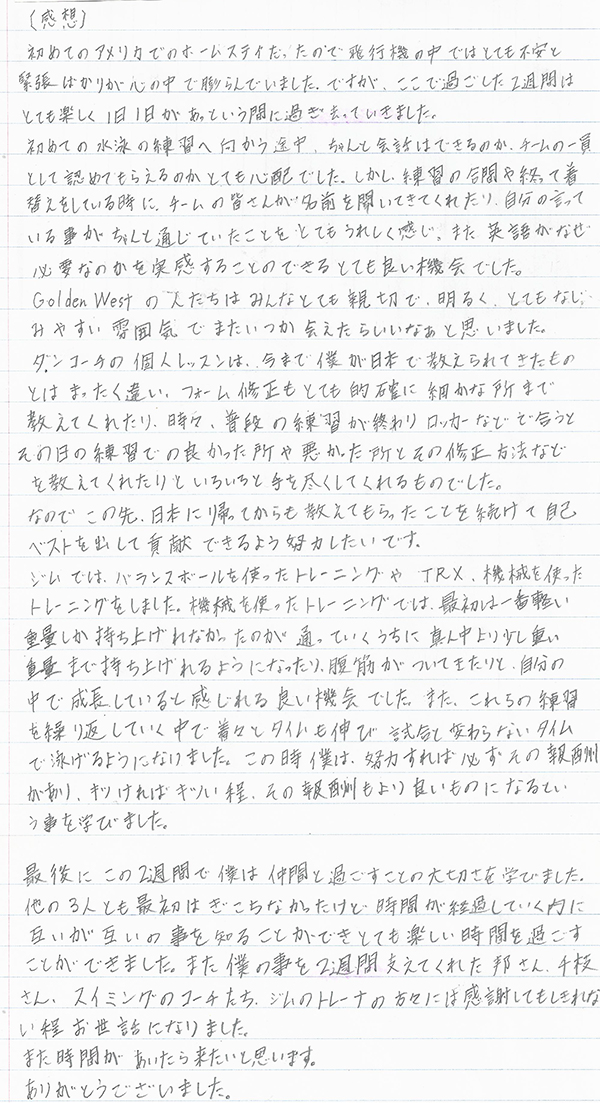 (感想)
初めてのアメリカでのホームステイだったので飛行機の中ではとても不安と
緊張ばかりが心の中で膨らんでいました。ですが、ここで過ごした2週間は
とても楽しく1日1日があっという間に過ぎ去っていきました。
初めての水泳の練習へ向かう途中、ちゃんと会話はできるのか、チームの一員
として認めてもらえるのかとても心配でした。しかし、練習の合間や終って着
替えをしている時に、チームの皆さんが名前を聞いてきてくれたり、自分の言って
いる事がちゃんと通じていたことをとてもうれしく感じ、また英語がなぜ
必要なのかを実感することのできるとても良い機会でした。
Golden Westの人たちはみんなとても親切で、明るく、とてもなじ
みやすい雰囲気でまたいつか会えたらいいなぁと思いました。
ダンコーチの個人レッスンは、今まで僕が日本で教えられてきたもの
とはまったく違い、フォーム修正もとても的確に細かな所まで
教えてくれたり、時々、普段の練習が終わりロッカーなどで合うと
その日の練習での良かった所や悪かった所とその修正方法など
を教えてくれたりといろいろと手を尽くしてくれるものでした。
なのでこの先、日本に帰ってからも教えてもらったことを続けて自己
ベストを出して貢献できるよう努力したいです。
ジムでは、バランスボールを使ったトレーニングやTRX、機械を使った
トレーニングをしました。機械を使ったトレーニングでは、最初は一番軽い
重量しか持ち上げれなかったのが通っていくうちに真ん中より少し重い
重量まで持ち上げれるようになったり、腹筋がついてきたりと、自分の
中で成長していると感じれる良い機会でした。また、これらの練習
を繰り返していく中で着々とタイムも伸び試合と変わらないタイム
で泳げるようになりました。この時僕は、努力すれば必ずその報酬
があり、キツければキツい程、その報酬もより良いものになるとい
う事を学びました。
最後にこの2週間で僕は仲間と過ごすことの大切さを学びました。
他の3人とも最初はぎこちなかったけど時間が経過していく内に
互いが互いの事を知ることができとても楽しい時間を過ごす
ことができました。また僕の事を2週間支えてくれた邦さん、千枝
さん、スイミングのコーチたち、ジムのトレーナの方々には感謝してもしきれな
い程お世話になりました。
また時間があいたら来たいと思います。
ありがとうございました。